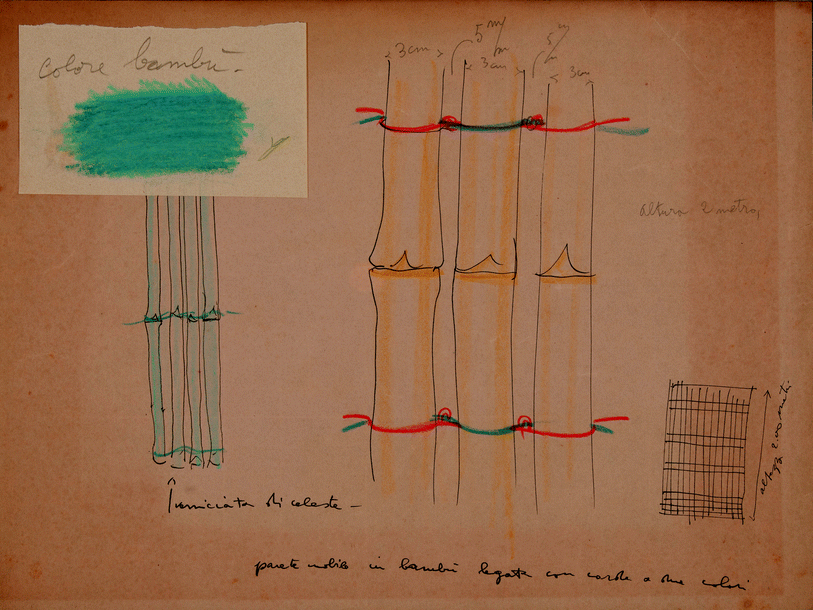 colore bambù -
3 cm
5 m/m
3 cm
5 m/m
3 cm
altura 2 metro,
verniciata di celeste -
altezza 2.00 metri
parete mobile in bambù legata con corde a due colori